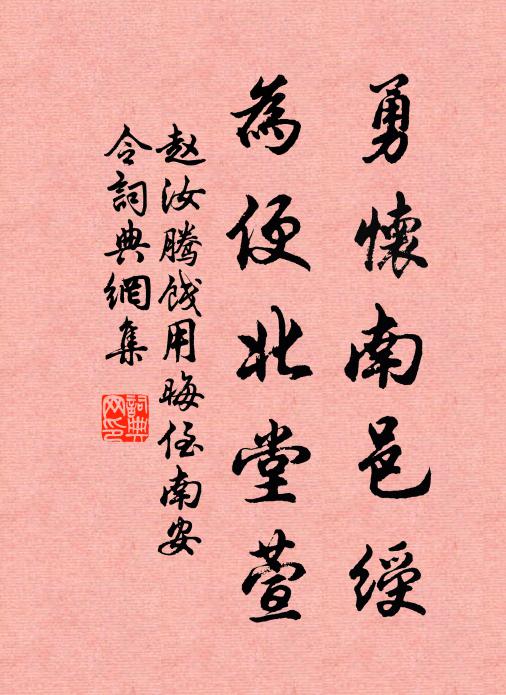 勇懷南邑綬
為便北堂萱
赵汝腾餞用晦侄南安
令詞典網集
詞典網印